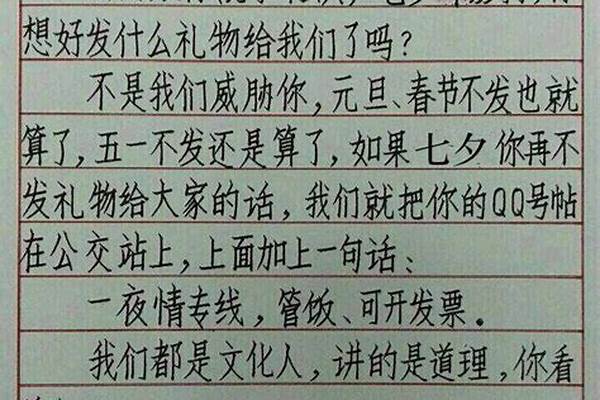 想好发什么礼物给我们了吗？
不是我们威胁你，元旦、春节不发也就
算了，五一不发还是算了，如果七夕你再不
发礼物给大家的话，我们就把你的QQ号帖
在公交站上，上面加上一句话：
一夜情专线，管饭、可开发票。
我们都是文化人，讲的是道理，你看